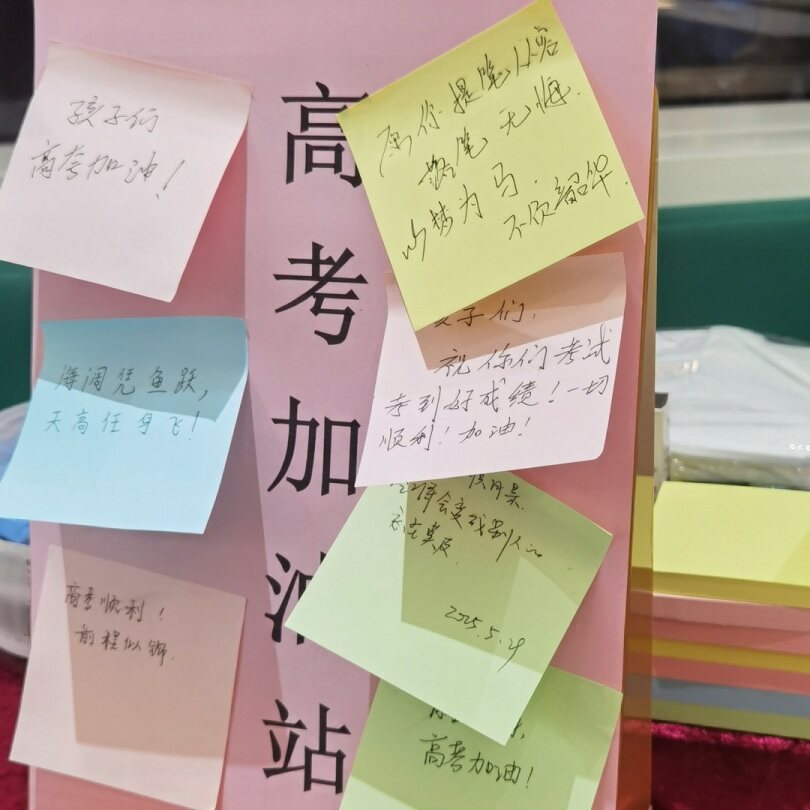 高考加油站
孩子们
高考加油!
愿你提笔从容
落笔无悔.
以梦为马.
不负韶华.
海阔凭鱼跃,
天高任鸟飞!
子们,
祝你们考试
考到好成绩!一切
顺利!加油!
高考顺利!
前程似锦.
2025.5.29
高考加油!